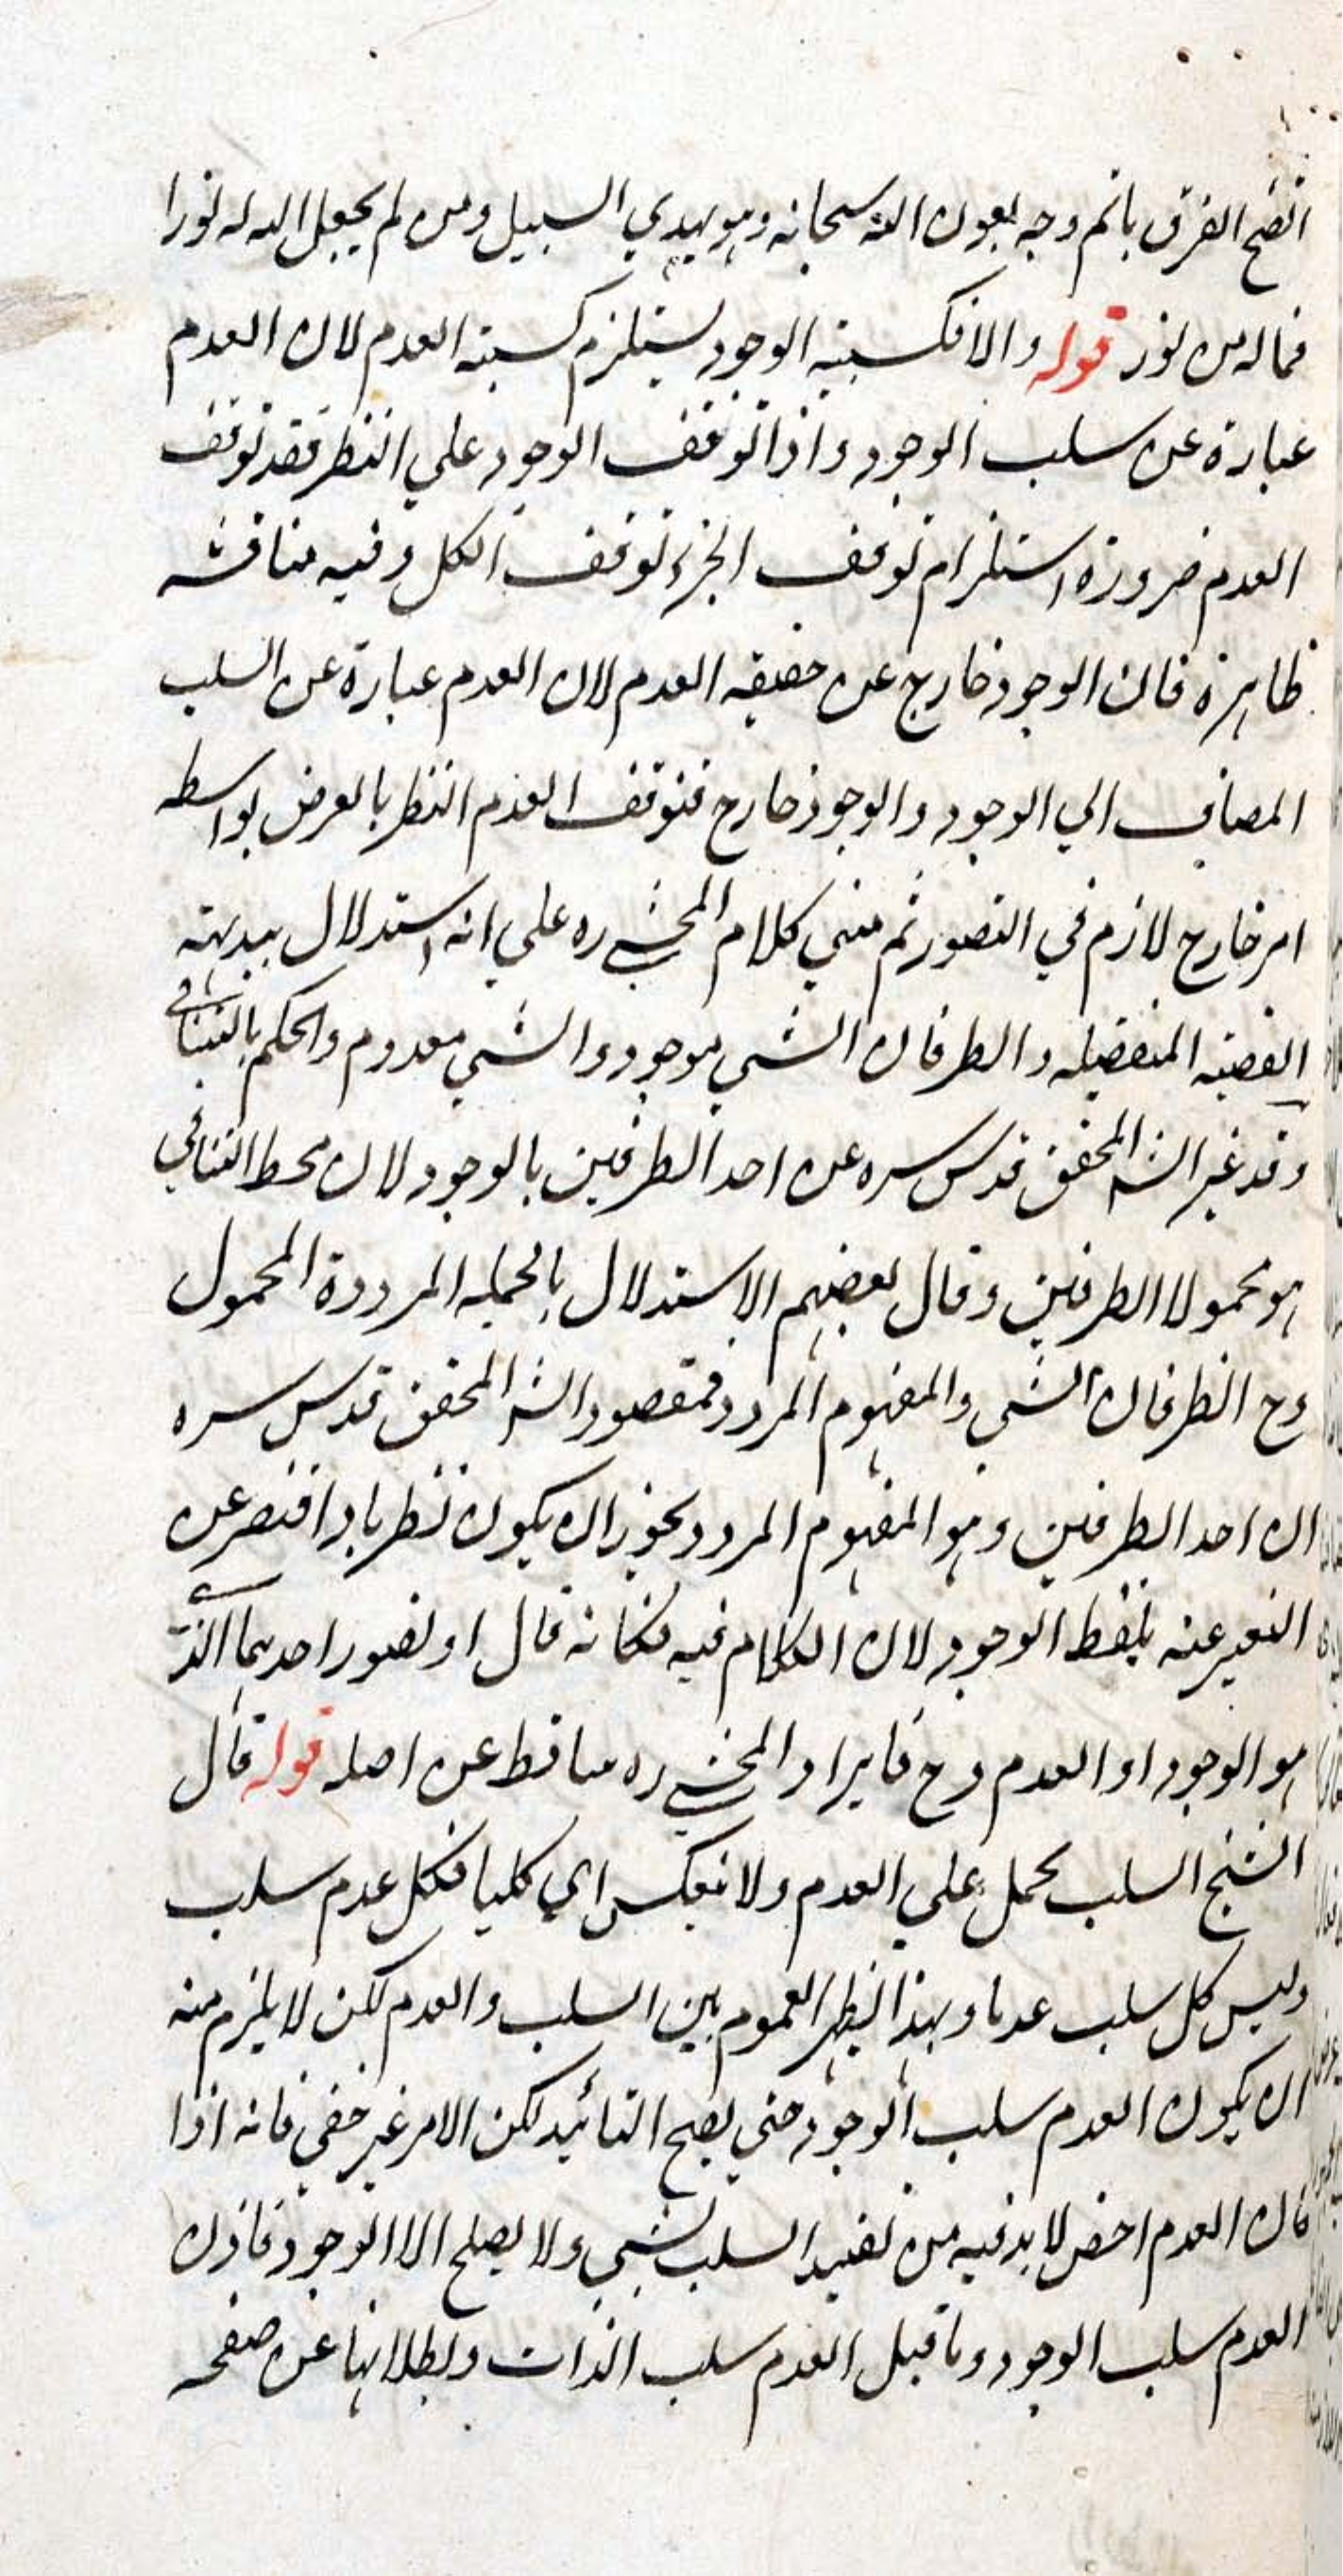 اتضح الفرق باتم وجه بعون الله سبحانه وهو يهدي السبيل ومن لم يجعل الله له نورا
فما له من نور قوله والا فكسبية الوجود يستلزم كسبية العدم لان العدم
عبارة عن سلب الوجود واذا توقف الوجود علي النظر فقد توقف
العدم ضرورة استلزام توقف الجزء توقف الكل وفيه مناقشة
ظاهرة فان الوجود خارج عن حقيقة العدم لان العدم عبارة عن السلب
المضاف الي الوجود والوجود خارج فتوقف العدم النظر بالعرض بواسطة
امر خارج لازم في التصور ثم مبني كلام المحشي ره علي انه استدلال ببديهة
القضية المنفصلة والطرفان الشي موجود والشي معدوم والحكم بالتنافي
وقد عبر الش المحقق قدس سره عن احد الطرفين بالوجود لان محط التنافي
هو محمولا الطرفين وقال بعضهم الاستدلال بالحملية المرددة المحمول
وح الطرفان الشي والمفهوم المردد فمقصود الش المحقق قدس سره
ان احد الطرفين وهو المفهوم المردد يجوز ان يكون نظريا واقتصر عن
التعبير عنه بلفظ الوجود لان الكلام فيه فكانه قال او تصور احدهما الذي
هو الوجود او العدم وح فايراد المحشي ره ساقط عن اصله قوله قال
الشيخ السلب يحمل علي العدم ولا ينعكس اي كليا فكل عدم سلب
وليس كل سلب عدما وبهذا يظهر العموم بين السلب والعدم لكن لا يلزم منه
ان يكون العدم سلب الوجود حتي يصح التائيد لكن الامر غير خفي فانه اذا
كان العدم اخص لا بد فيه من تقييد السلب بشي ولا يصلح الا الوجود فاذن
العدم سلب الوجود وما قيل العدم سلب الذات وبطلانها عن صفحة